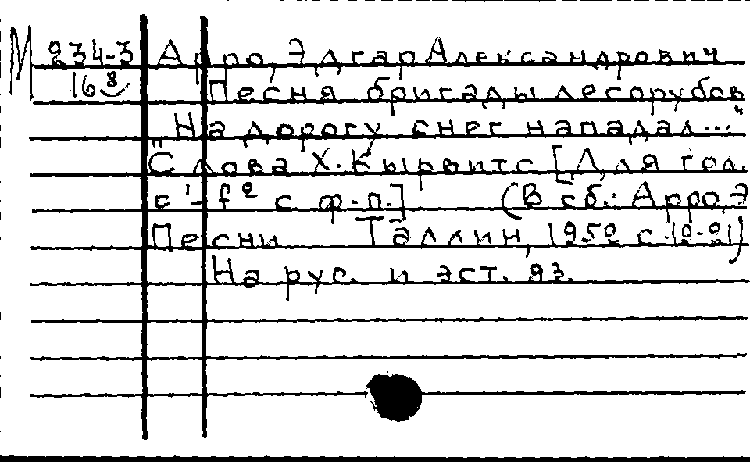 М 234-3 Арро, Эдгар Александрович
16 Песня бригады лесорубов
„На дорогу снег нападал..."
Слова Х. Кырвитс [Для гол.
c¹-f² с ф-п.] (В сб.: Арро, Э
Песни Таллин, 1952 с.
На рус. и эст. яз.